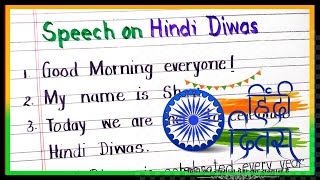 Speech on Hindi Diwas
1. Good Morning everyone!
2. My name is Sh
3. Today we are he
Hindi Diwas.
celebrated every year
हिंदी
दिवस